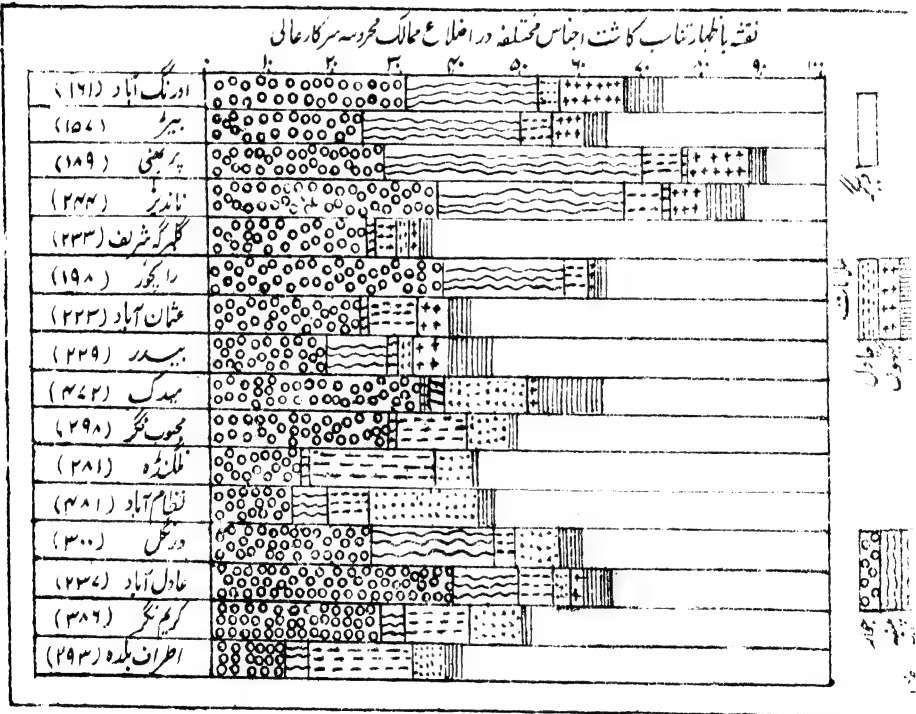 نقشہ باظہار تناسب کاشت اجناس مختلفہ در اضلاع ممالک محروسہ سرکار عالی
۰ ۱۰ ۲۰ ۳۰ ۴۰ ۵۰ ۶۰ ۷۰ ۸۰ ۹۰ ۱۰۰
اورنگ آباد (۱۶۱)
بیڑ (۱۵۷)
پربھنی (۱۸۹)
ناندیڑ (۲۴۴)
گلبرگہ شریف (۲۳۳)
رایچور (۱۹۸)
عثمان آباد (۲۲۳)
بیدر (۲۲۹)
میدک (۴۷۲)
محبوب نگر (۲۹۸)
نلگنڈہ (۲۸۱)
نظام آباد (۴۸۱)
ورنگل (۳۰۰)
عادل آباد (۲۳۷)
کریم نگر (۳۸۶)
اطراف بلدہ (۲۹۳)
دیگر
چاول
گیہوں
جوار